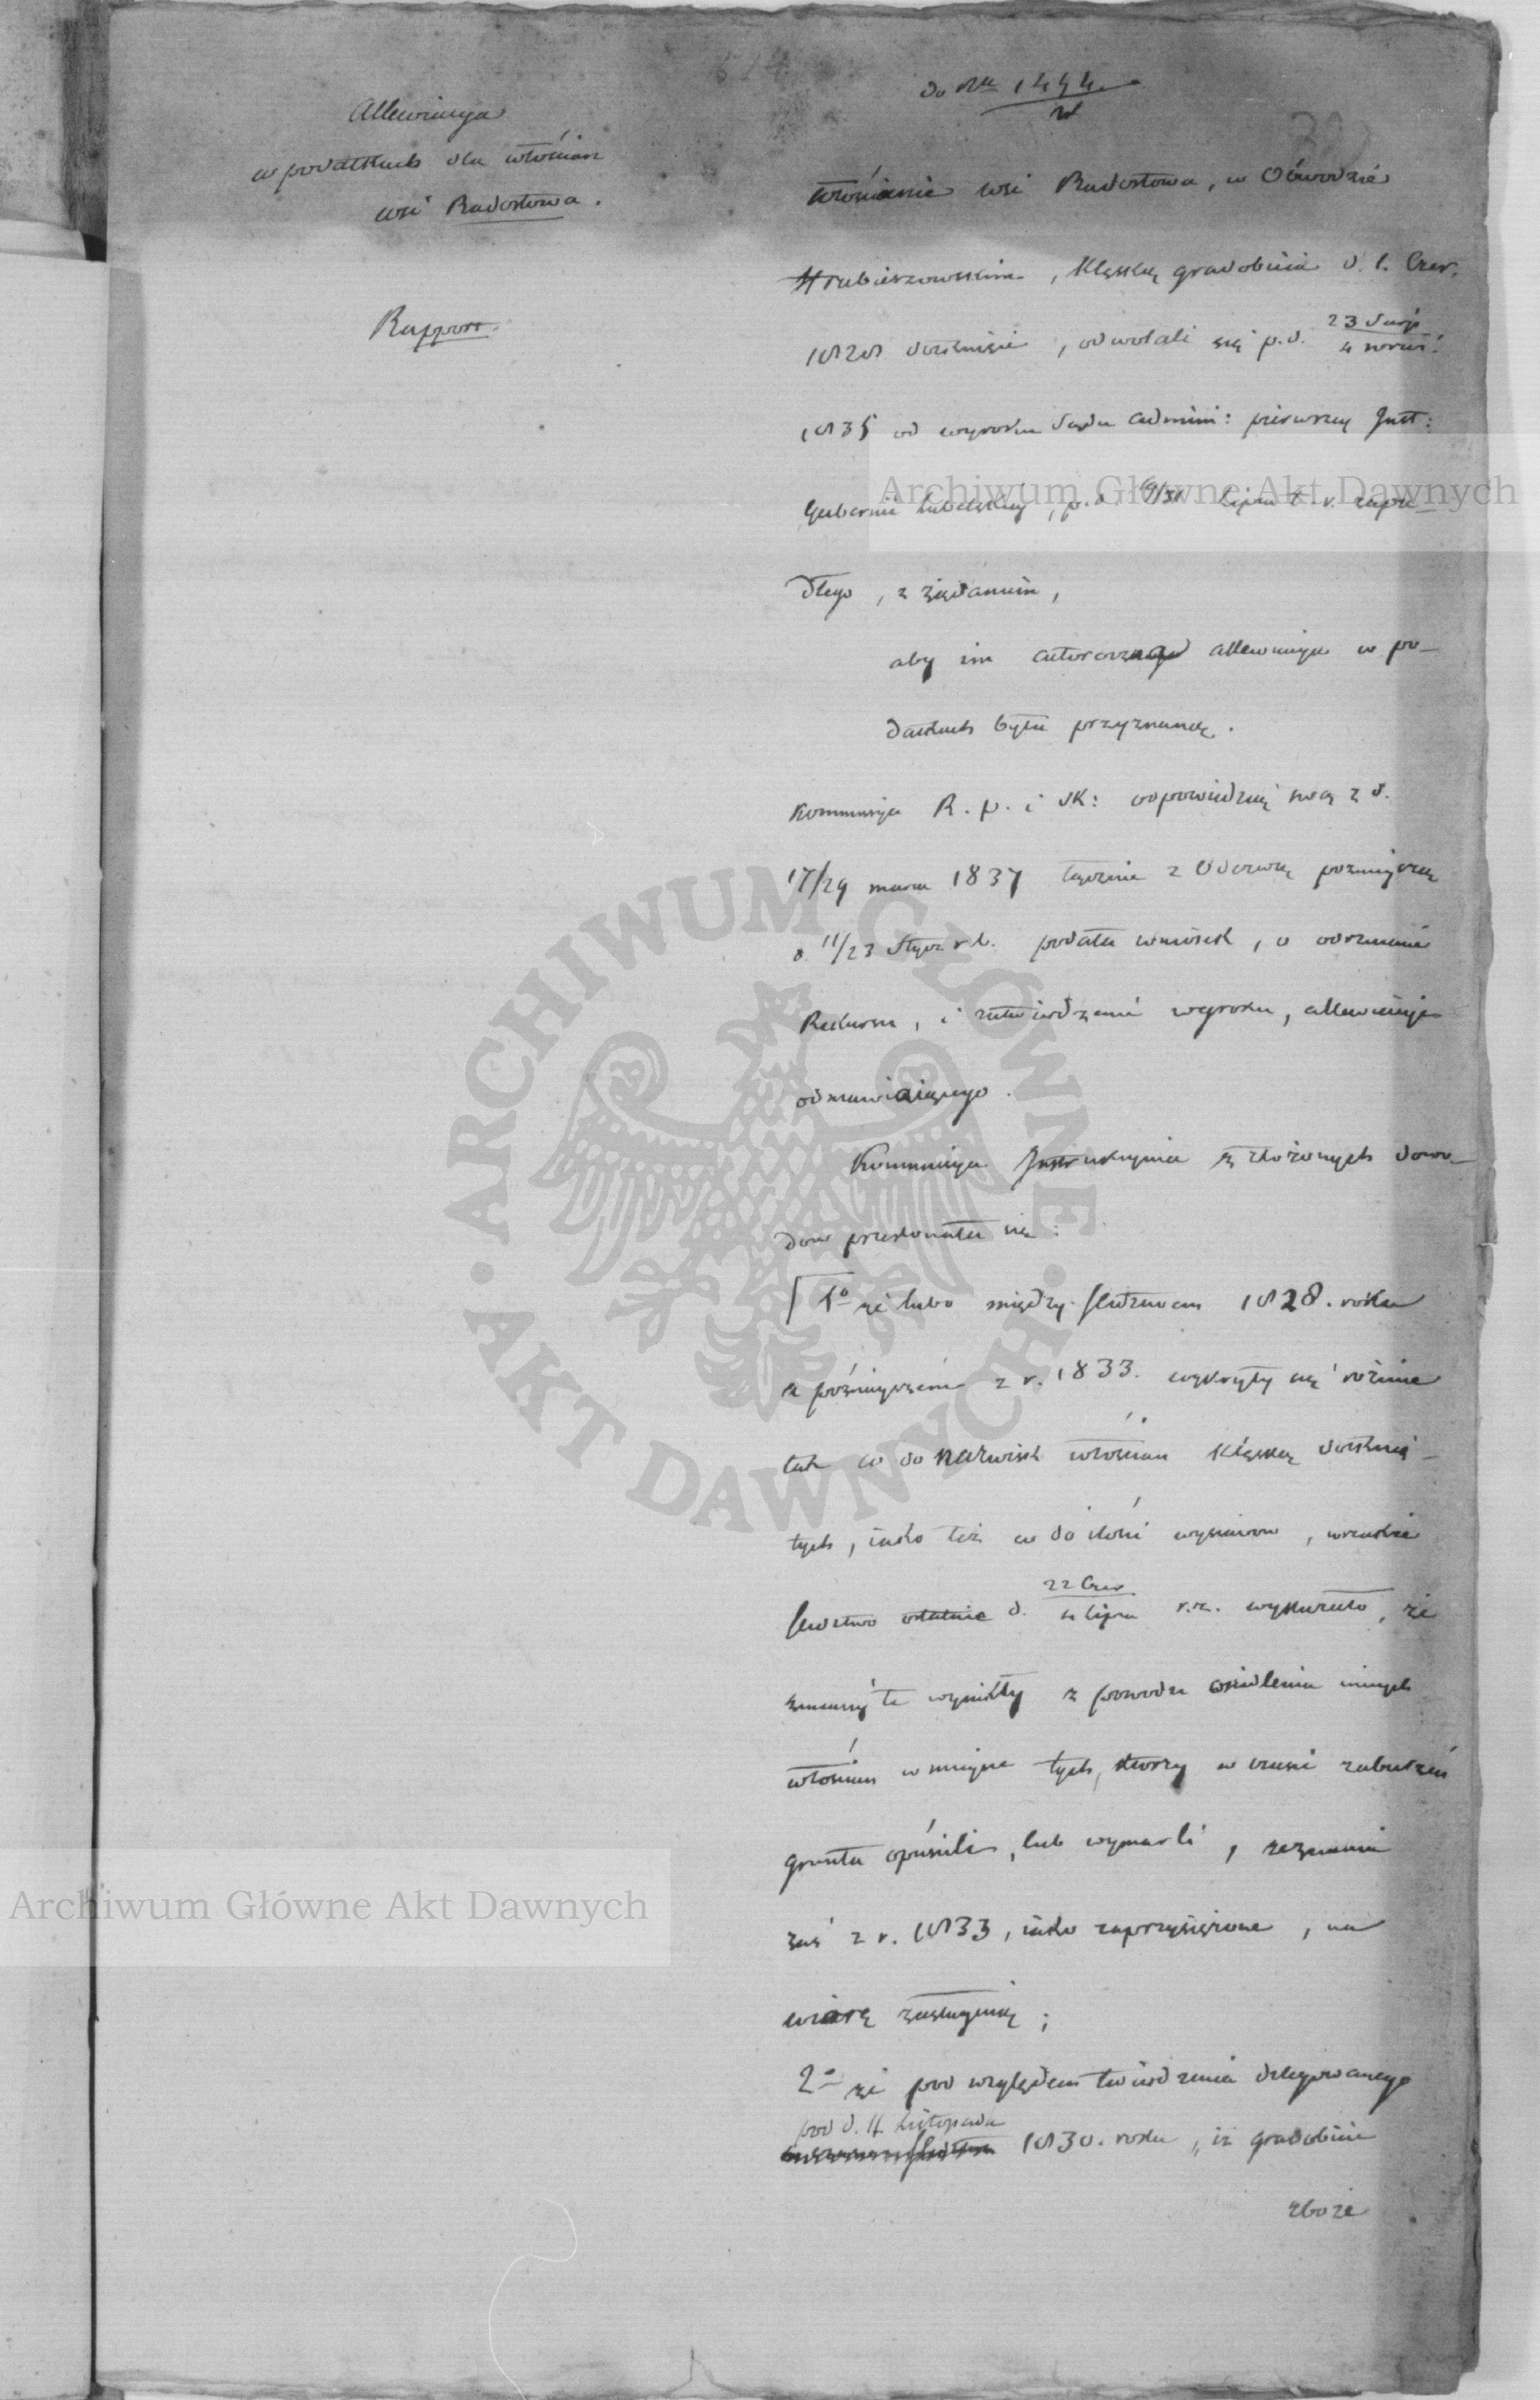 Allewiacya
w podatkach dla włościan
wsi Radostowa.
Rapport.
do Nru 1494
Włościanie wsi Radostowa, w Obwodzie
Hrubieszowskim, klęską gradobicia d. 1. Czer.
1828 dotknięci, odwołali się p. d. 23 Paźd / 4 Novem:
1835 od wyroku Sądu Admini: pierwszej Inst:
Gubernii Lubelskiej, p. d. 19/31 Lipca t. r. zapa-
dłego, z żądaniem,
aby im allewiacya w po-
datkach była przyznaną.
Kommissya R. P. i Sk: odpowiedzią swą z d.
17/29 marca 1837 łącznie z Odezwą poźniejszą
d. 11/23 Stycz r. b. podała wniosek, o odrzucenie
Rekursu, i zatwierdzenie wyroku, allewiacyi
odmawiaiącego.
Kommissya Instrukcyina z złożonych dowo-
dow przekonała się:
1o że lubo między śledztwem 1828. roku
a poźniejszem z r. 1833. wykryły się różnice
tak co do nazwisk włościan klęską dotknię-
tych, iako też co do ilości wysiewow, wszakże
śledztwo ostatnie d. 22 Czer / 4 Lipca r. z. wykazało, że
zmiany te wynikły z powodu osiedlenia innych
włościan w miejsce tych, ktorzy w czasie zaburzeń
grunta opuścili, lub wymarli, zeznania
zaś z r. 1833, iako zaprzysiężone, na
wiarę zasługuią;
2o że pod względem twierdzenia delegowanego
pod d. 4. Listopada
1830. roku, iż gradobicie
zboże
Archiwum Główne Akt Dawnych
Archiwum Główne Akt Dawnych
ARCHIWUM GŁÓWNE
AKT DAWNYCH